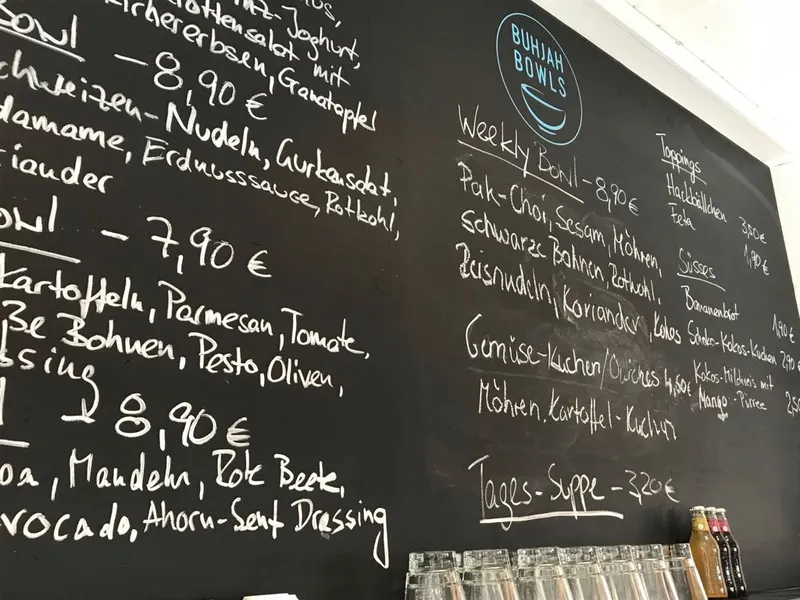 Joghurt,
Kichererbsen, Granatapfel
Bowl – 8,90 €
Nudeln, Gurkensalat,
Edamame, Erdnusssauce, Rotkohl,
Koriander
Bowl – 7,90 €
Kartoffeln, Parmesan, Tomate,
Bohnen, Pesto, Oliven,
8,90 €
Mandeln, Rote Beete,
Avocado, Ahorn-Senf Dressing
BUHJAH
BOWLS
Weekly Bowl – 8,90 €
Pak-Choi, Sesam, Möhren,
schwarze Bohnen, Rotkohl,
Reisnudeln, Koriander, Kokos
Gemüse-Kuchen/Quiches 4,60€
Möhren, Kartoffel-Kuchen
Tages-Suppe – 3,20 €
Toppings
Hackbällchen 3,50€
Feta 1,90€
Süsses
Bananenbrot 1,90€
Schoko-Kokos-Kuchen 2,90
Kokos-Milchreis mit
Mango-Püree 2,50